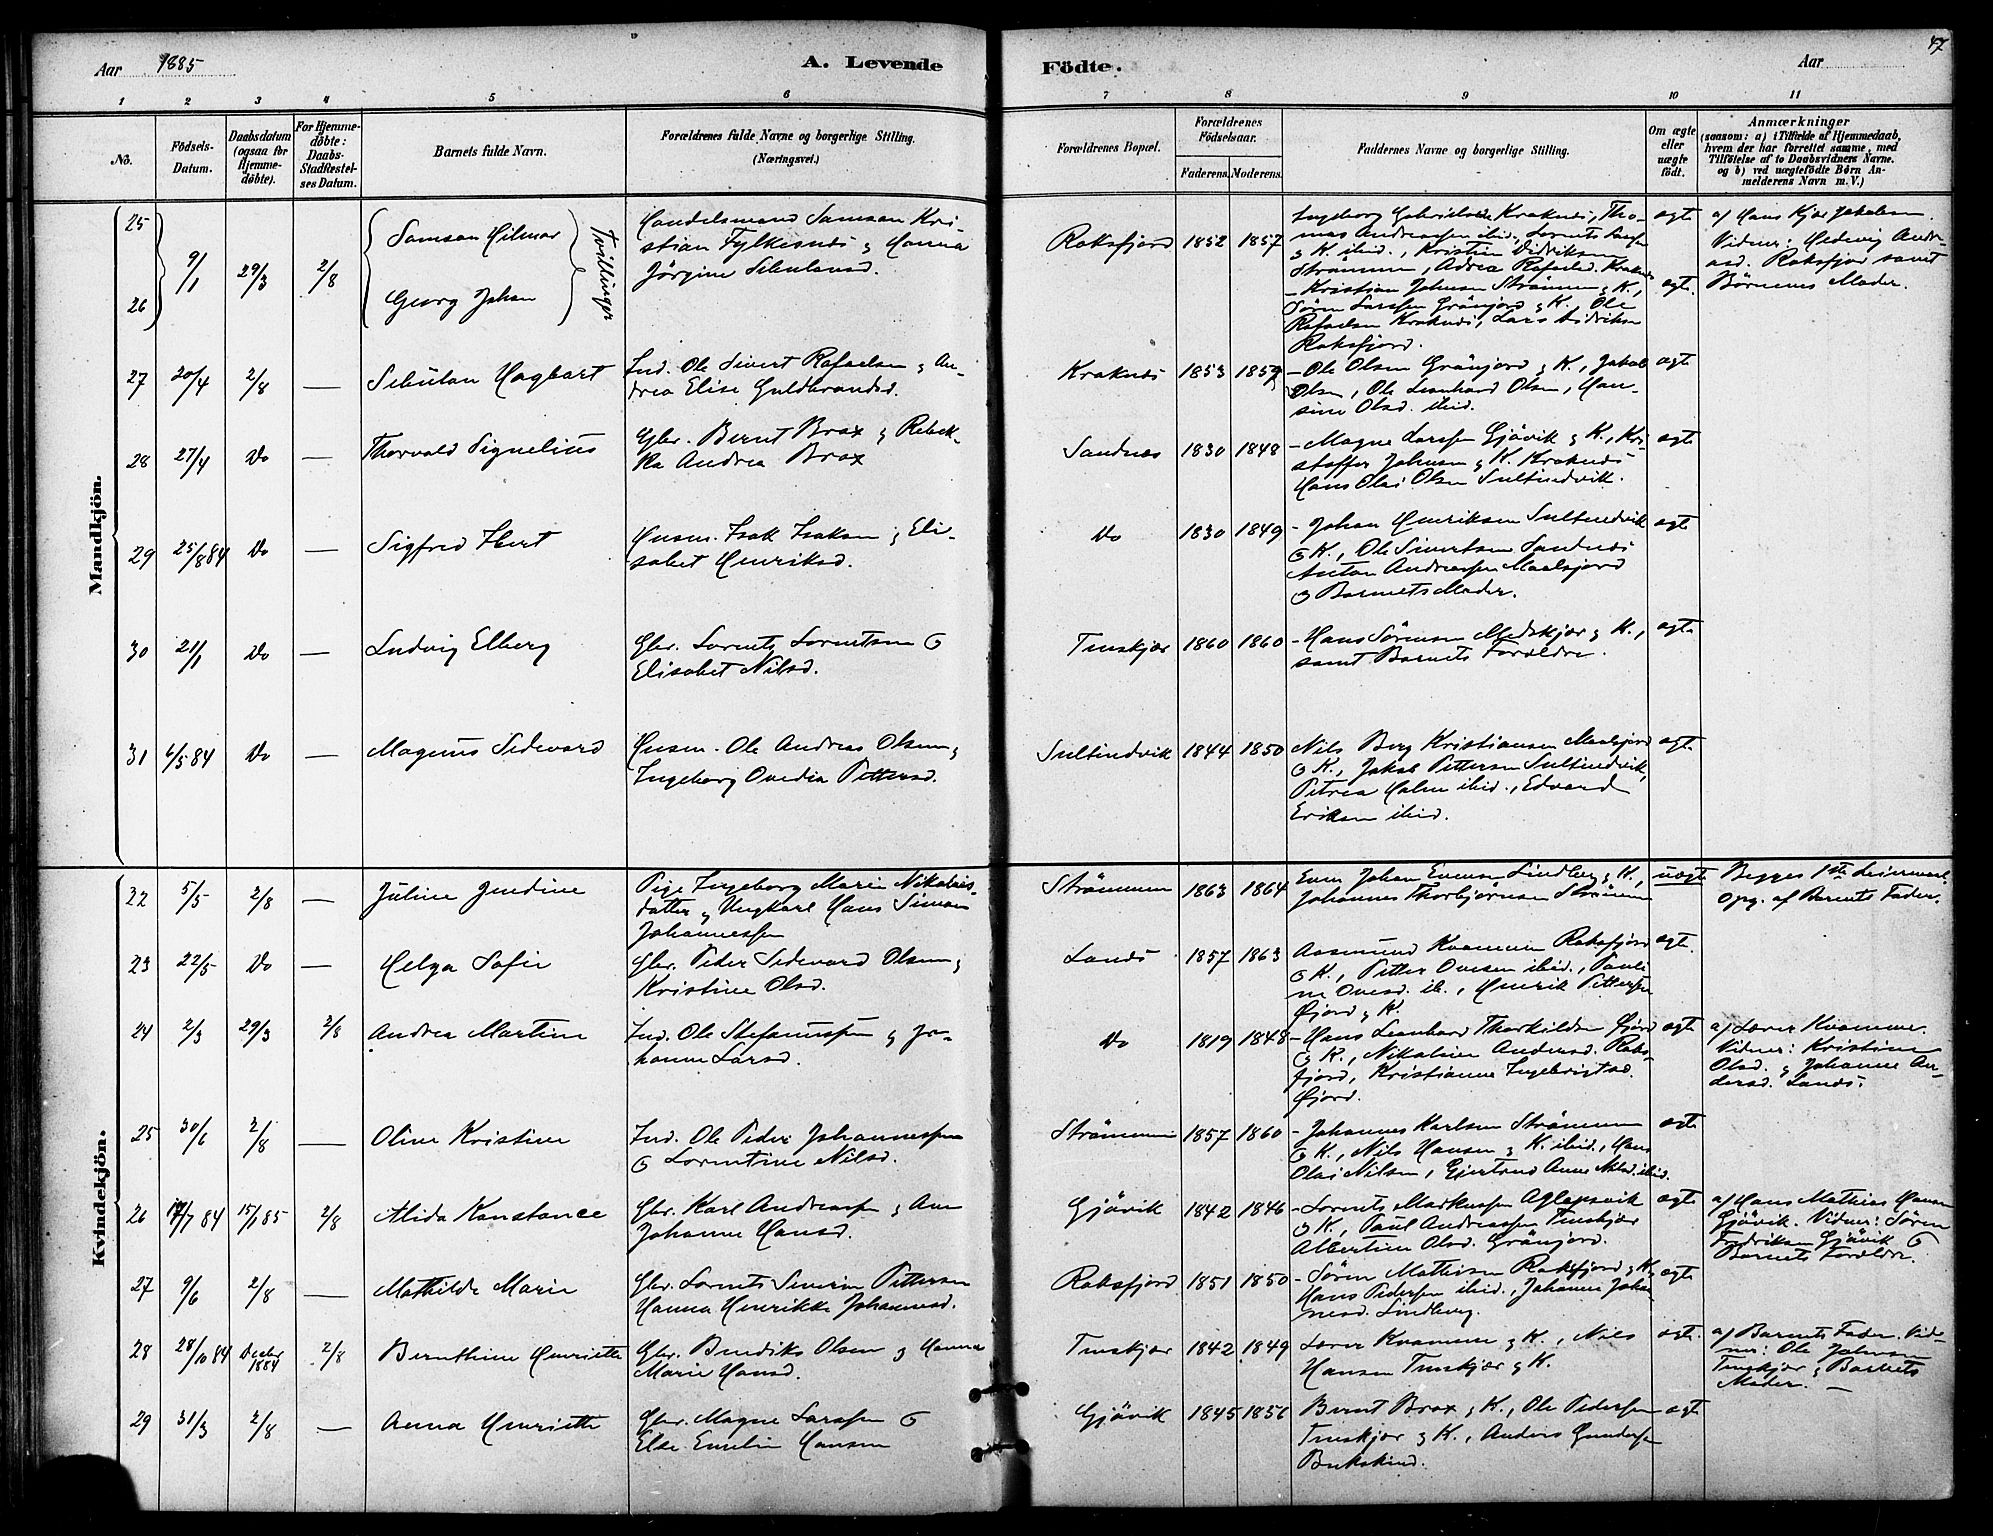 47
Aar 1885
A. Levende
Födte.
Aar
1 2 3 4 5 6 7 8 9 10 11
No.
Födsels-
Datum.
Daabsdatum
(ogsaa for
Hjemme-
döbte).
For Hjemme-
döbte:
Daabs-
Stadfæstel-
ses Datum.
Barnets fulde Navn.
Forældrenes fulde Navne og borgerlige Stilling.
(Næringsvei.)
Forældrenes Bopæl.
Forældrenes
Födselsaar.
Faderens. Moderens.
Faddernes Navne og borgerlige Stilling.
Om ægte
eller
uægte
födt.
Anmærkninger
(saasom: a) i Tilfælde af Hjemmedaab,
hvem der har forrettet samme, med
Tilföielse af to Daabsvidners Navne.
og b) ved uægtefödte Börn An-
melderens Navn m. V.)
Mandkjön.
25
26
9/1 29/3 2/8
Samson Hilmar
Georg Johan
Tvillinger
Handelsmand Samson Kri-
stian Fylkesnes & Hanna
Jörgine Schuland.
Raksfjord 1852 1857
Ingeborg Gabrielsen Kraknes, Tho-
mas Andreassen ibid., Lorents Larsen
& K. ibid., Kristine Didriksen
Strømmen, Adrea Rafaelsd. Kraknes
- Kristian Johnsen Strömmen & K.,
Sören Larssen Grönjord & K., Ole
Rafaelsen Kraknes, Lars Didriksen
Raksfjord.
ægte
ægte.
a/ Hans Kjær Jakobsen.
Vidner: Hedevig Andr-
easd. Raksfjord samt
Børnenes Moder.
27 20/4 2/8 —
Schulan Hagbart
Ind. Ole Sivert Rafaelsen & An-
drea Elise Guldbrandsd.
Kraknes 1853 1859
- Ole Olsen Grönjord & K., Jakob
Olsen, Ole Leonhard Olsen, Han-
sine Olsd. ibid.
ægte
28 27/4 Do —
Thorvald Signelius
Gbr. Bernt Brox & Rebek-
ka Andrea Brox
Sandnes 1830 1848
- Magne Larssen Gjövik & K., Kri-
stoffer Johnsen & K. Kraknes
Hans Olai Olsen Sultindvik.
ægte
29 25/8 84 Do —
Sigfred Hert
Husm. Isak Isaksen & Eli-
sabet Henriksd.
Do 1830 1849
- Johan Henriksen Sultindvik
& K., Ole Sivertsen Sandnes
Anton Andreassen Maalsjord
& Barnets Moder.
ægte
30 21/1 Do —
Ludvig Elberg
Gbr. Lorents Lorentsen &
Elisabet Nilsd.
Tenskjær 1860 1860
- Hans Sörensen Medskjær & K.,
samt Barnets Forældre.
ægte
31 6/5 84 Do —
Magnus Sedevard
Husm. Ole Andreas Olsen &
Ingeborg Ovedia Pettersd.
Sultindvik 1844 1850
Nils Berg Kristiansen Maalsjord
& K., Jakob Pettersen Sultindvik,
Petrea Holm ibid., Edvard
Eriksen ibid.
ægte
Kvindekjön.
22 5/5 2/8 —
Juline Jendine
Pige Ingeborg Marie Nikolais-
datter & Ungkarl Hans Simon
Johannessen
Strömmen 1863 1864
Even Johan Evensen Lindberg & K.,
Johannes Thorbjørnsen Strömmen
uægte
Begges 1ste Leiermaal.
Opg. af Barnets Fader.
23 22/5 Do —
Helga Sofie
Gbr. Peder Sedevard Olsen &
Kristine Olsd.
Lands 1857 1863
Aasmund Kvammen Raksfjord
& K., Petter Ovesen ibid., Pauli-
ne Ovesd. ib., Henrik Pettersen
Øjord & K.
ægte
24 2/3 29/3 2/8
Andrea Martine
Ind. Ole Stefanussen & Jo-
hanne Larsd.
Do 1819 1848
- Hans Leonhard Thorkildsen Øjord
& K., Nikoline Andersd. Raks-
fjord, Kristianne Ingebrigtsd.
Øjord.
ægte
a/ Lærer Kvammen.
Vidner: Kristine
Olsd. & Johanne An-
dersd. Lands.
25 30/6 2/8 —
Oline Kristine
Ind. Ole Peder Johannessen
& Lorentine Nilsd.
Strömmen 1857 1860
- Johannes Karlsen Strömmen
& K., Nils Hansen & K. ibid., Hans
Olai Nilsen, Gjertrud Anne Nilsd. ibid.
ægte
26 17/7 84 15/1 85 2/8
Alida Konstance
Gbr. Karl Andreassen & Ane
Johanne Hansd.
Gjövik 1842 1846
- Lorents Markussen Aglapsvik
& K., Paul Andreassen Tenskjær
Albertine Olsd. Grönjord.
ægte
a/ Hans Mathias Hansen
Gjövik. Vidner: Sören
Fredriksen Gjövik &
Barnets Forældre
27 9/6 2/8 —
Mathilde Marie
Gbr. Lorents Severin Pettersen
Hanna Henrikke Johannesd.
Raksfjord 1851 1850
- Sören Mathisen Raksfjord & K.,
Hans Pedersen ibid., Johanne Johan-
nesd. Lindberg.
ægte
28 28/10 84 Decbr 1884 2/8
Bernthine Henriette
Gbr. Bendiks Olsen & Hanna
Marie Hansd.
Tenskjær 1842 1849
Lærer Kvammen & K., Nils
Hansen Tenskjær & K.
ægte.
a/ Barnets Fader. Vid-
ner: Ole Johnsen
Tenskjær & Barnets
Moder. —
29 31/3 2/8 —
Anna Henriette
Gbr. Magne Larssen &
Else Emelie Hansen
Gjövik 1845 1856
Bernt Brox & K., Ole Pedersen
Tenskjær & K., Anders Gundersen
Bukskind.
ægte